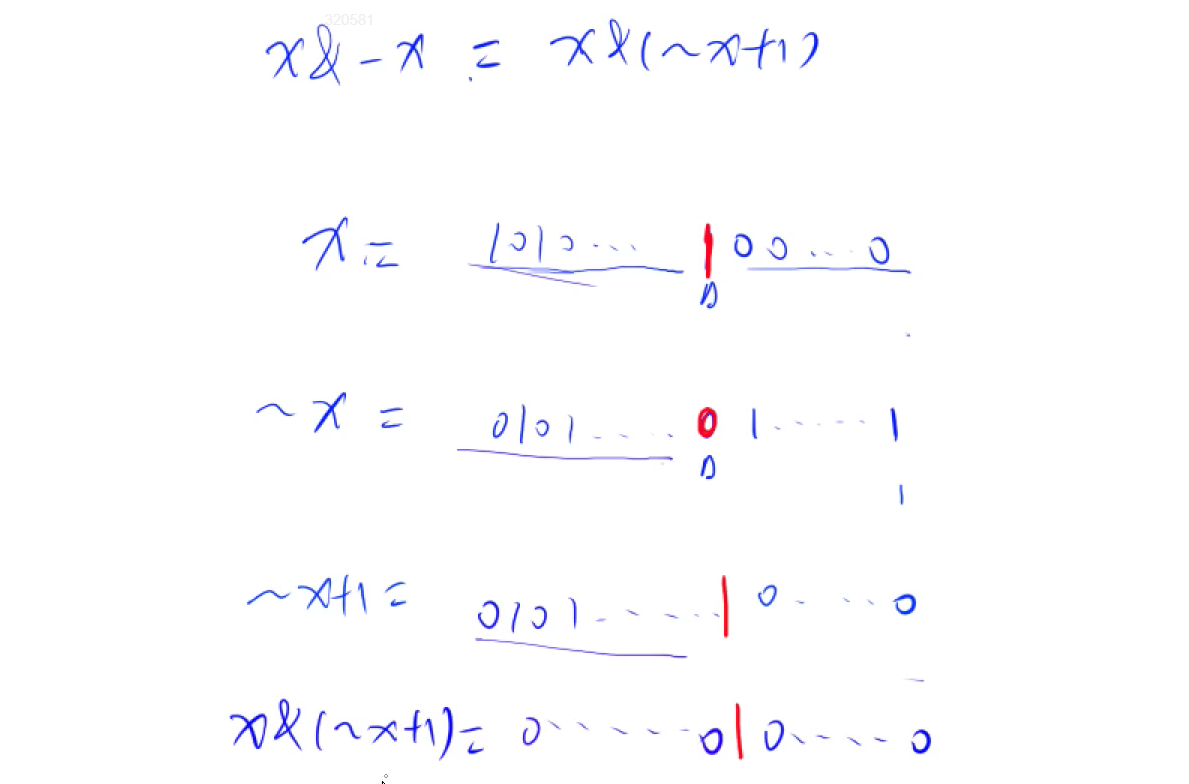 320581
x&-x = x&(~x+1)
x = 1010... 1 00...0
~x = 0101.... 0 1.....1
1
~x+1 = 0101...... 1 0....0
x&(~x+1) = 0.....0 1 0.....0